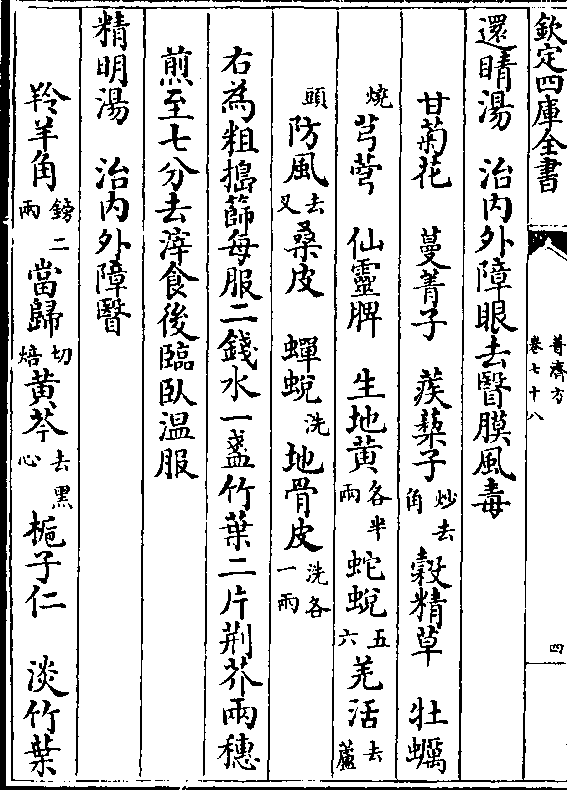 欽定四庫全書
普濟方
卷七十八
四
還睛湯　治内外障眼去翳膜風毒
甘菊花　蔓菁子　蒺䔧子炒去角　榖精草　牡蠣
燒　芎藭　仙靈脾　生地黄各半兩　蛇蛻五六　羌活去蘆
頭　防風去叉　桑皮　蟬蛻洗　地骨皮洗各一兩
右為粗搗篩每服二錢水一盞竹葉二片荆芥兩穗
煎至七分去滓食後臨臥温服
精明湯　治内外障翳
羚羊角鎊二兩　當歸切焙　黄芩去黑心　梔子仁　淡竹葉